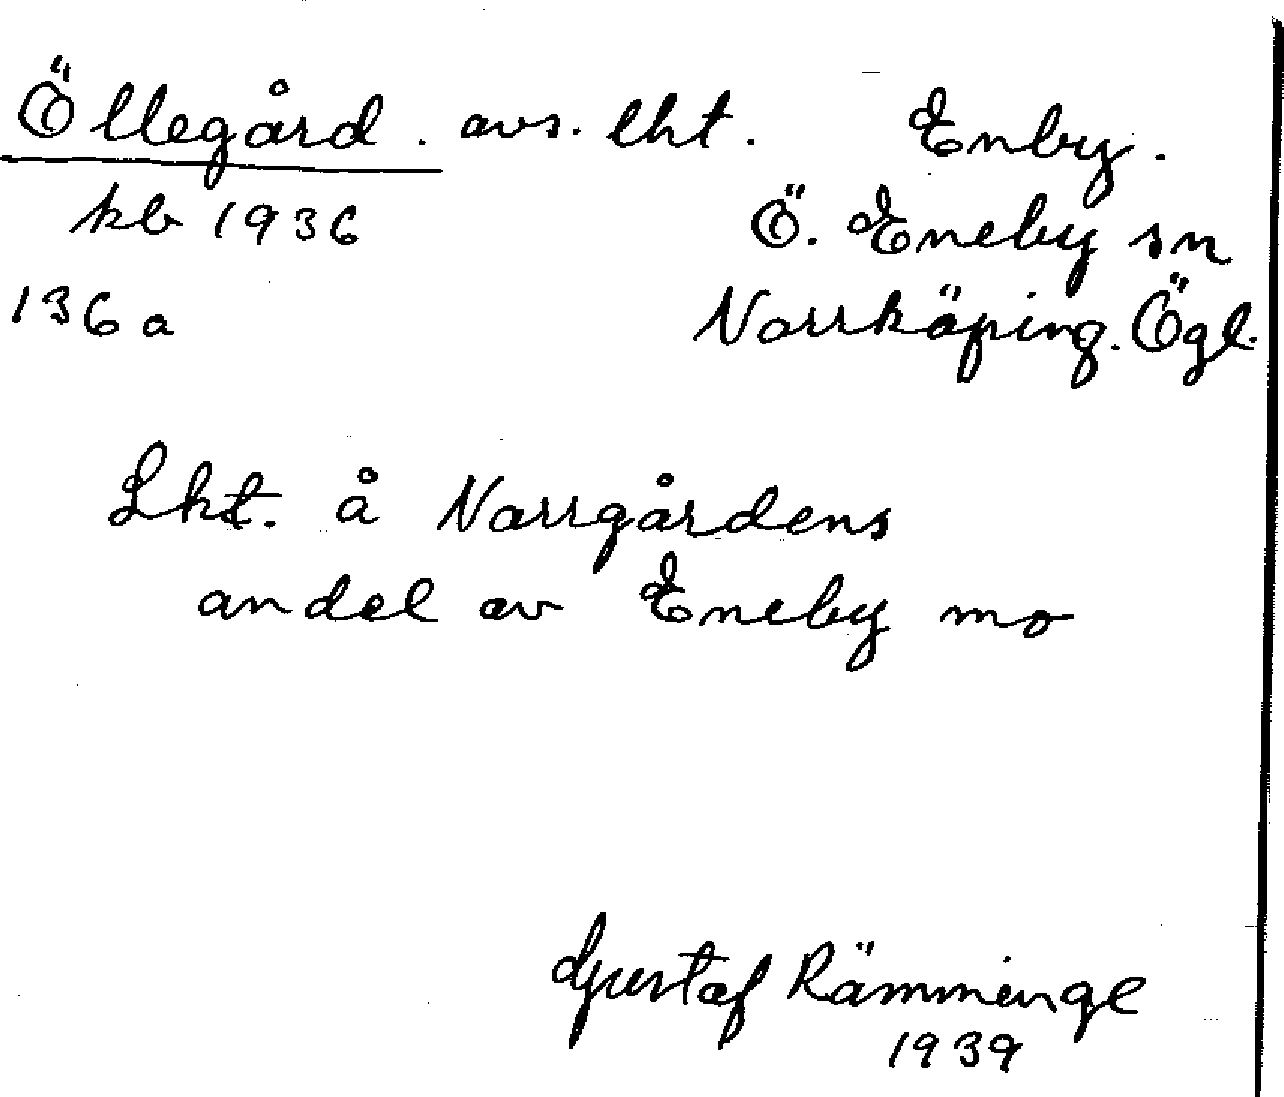 Öllegård. avs. lht. Enby.
kb 1936 Ö. Eneby sn
136a Norrköping. Ögl.
Lht. å Norrgårdens
andel av Eneby mo
Gustaf Rämminge
1939